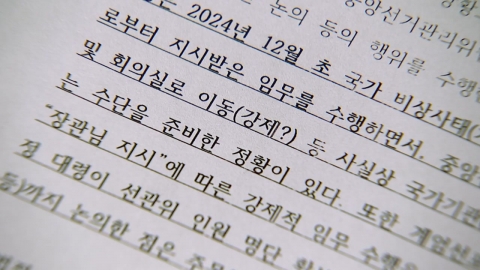 논의 등의 행위를 수행
은 2024년 12월 초 국가 비상사태(
로부터 지시받은 임무를 수행하면서, 중앙
및 회의실로 이동(강제?) 등 사실상 국가기관
는 수단을 준비한 정황이 있다. 또한 계엄선포
"장관님 지시"에 따른 강제적 임무 수행을
정 대령이 선관위 인원 명단 확
등)까지 논의한 점은